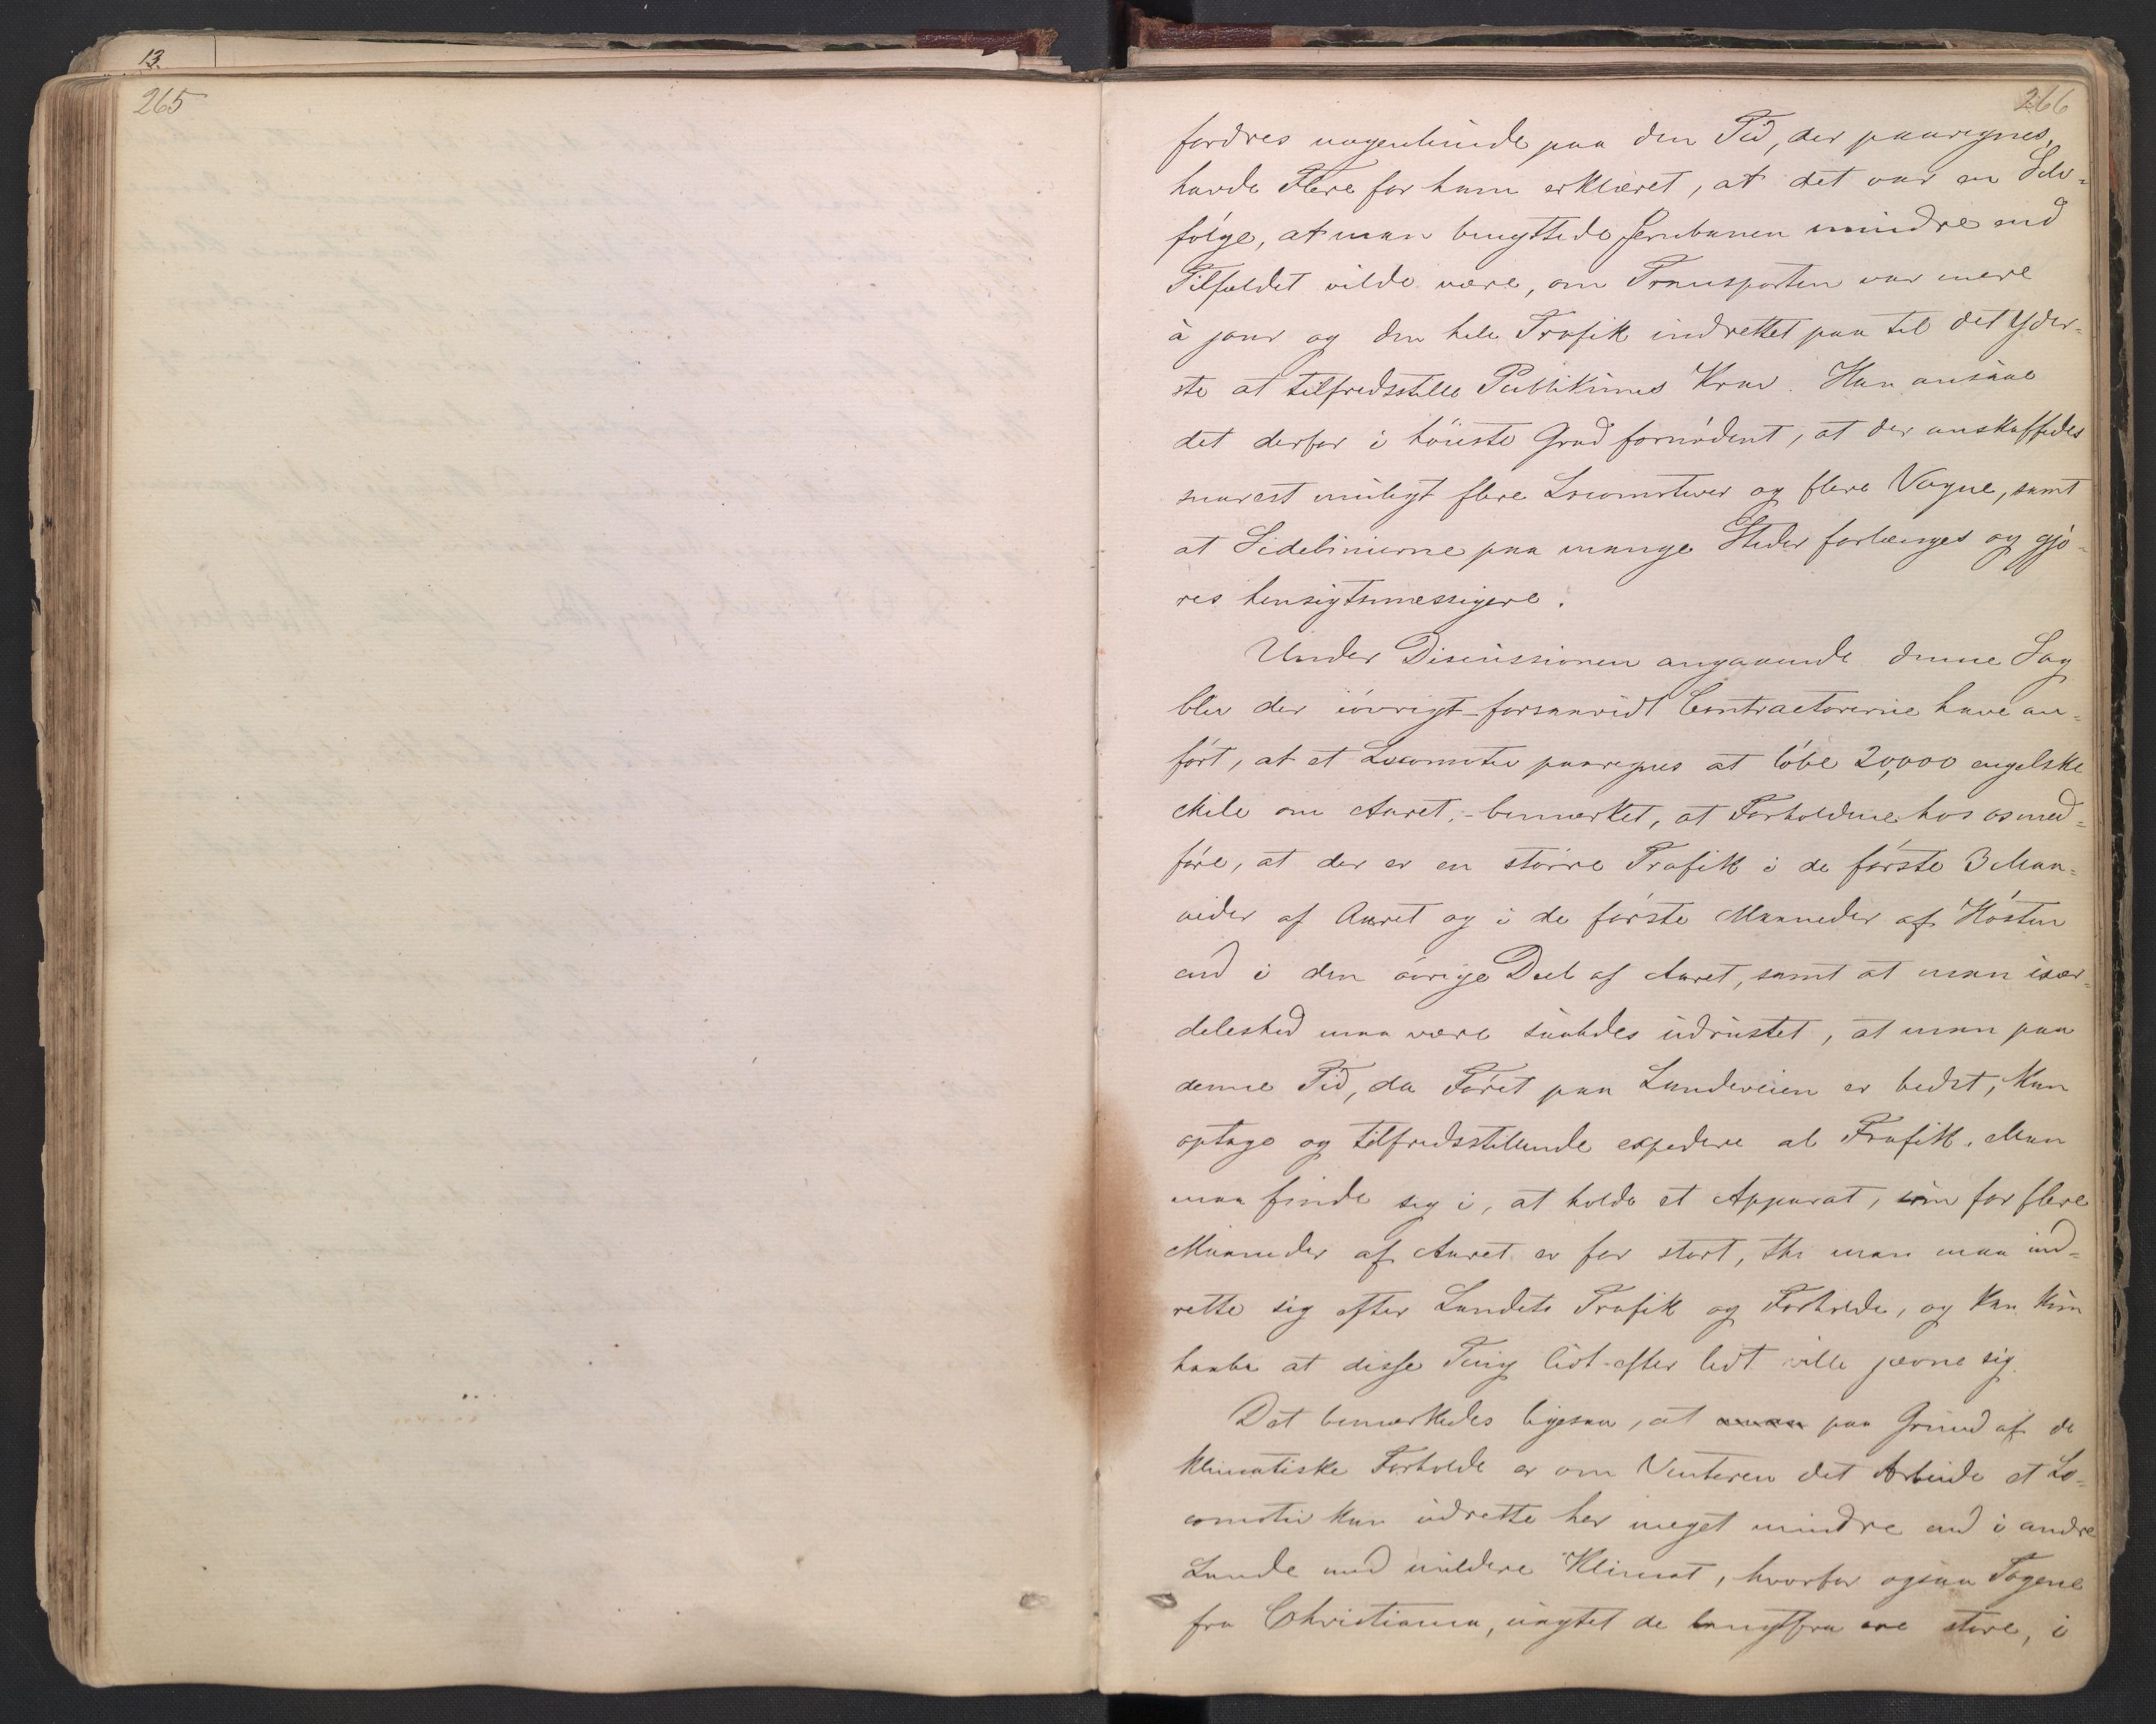 13.
265
266
fordres uagenhinde paa den Tid, der paaregnes,
havde Flere for ham erklæret, at det var en Selv-
følge, at man benyttede Jernbanen mindre end
Tilfældet vilde være, om Transporten var mere
à jour og den hele Trafik indrettet paa til det Yder-
ste at tilfredsstille Publikums Krav. Han ansaae
det derfor i høieste Grad fornødent, at der anskaffedes
snarest muligt flere Locomotiver og flere Vogne, samt
at Sidelinierne paa mange Steder forlænges og gjø-
res hensigtsmæssigere.
Under Discussionen angaaende denne Sag
blev der iøvrigt - forsaavidt Contractorerne have an-
ført, at et Locomotiv paaregnes at løbe 20,000 engelske
Mile om Aaret, - bemærket, at Forholdene hos os med-
føre, at der er en større Trafik i de første 3 Maa-
neder af Aaret og i de første Maaneder af Høsten
end i den øvrige Deel af Aaret, samt at man især-
deleshed maa være saaledes udrustet, at man paa
denne Tid, da Føret paa Landeveien er bedst, kan
optage og tilfredsstillende expedere al Trafik. Man
maa finde sig i, at holde et Apparat, som for flere
Maaneder af Aaret er for stort, thi man maa ind-
rette sig efter Landets Trafik og Forholde, og kan kun
haabe at disse Ting lidt efter lidt ville jævne sig.
Det bemærkedes ligesaa, at paa Grund af de
klimatiske Forholde er om Vinteren det Arbeide et Lo-
comotiv kan udrette her meget mindre end i andre
Lande med mildere Klimat, hvorfor ogsaa Togene
fra Christiania, uagtet de langtfra ere store, i